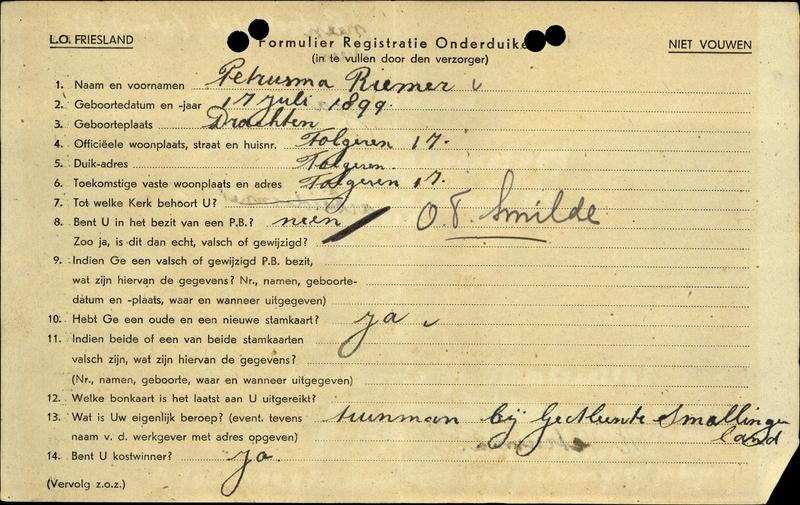 L.O. FRIESLAND
Formulier Registratie Onderduike
NIET VOUWEN
(in te vullen door den verzorger)
1. Naam en voornamen Petrusma Riemer
2. Geboortedatum en -jaar 17 juli 1899.
3. Geboorteplaats Drachten
4. Officiëele woonplaats, straat en huisnr. Folgeren 17.
5. Duik-adres Folgeren
6. Toekomstige vaste woonplaats en adres Folgeren 17.
7. Tot welke Kerk behoort U?
8. Bent U in het bezit van een P.B.? neen O.T. Smilde
Zoo ja, is dit dan echt, valsch of gewijzigd?
9. Indien Ge een valsch of gewijzigd P.B. bezit,
wat zijn hiervan de gegevens? Nr., namen, geboorte-
datum en -plaats, waar en wanneer uitgegeven)
10. Hebt Ge een oude en een nieuwe stamkaart? ja
11. Indien beide of een van beide stamkaarten
valsch zijn, wat zijn hiervan de gegevens?
(Nr., namen, geboorte, waar en wanneer uitgegeven)
12. Welke bonkaart is het laatst aan U uitgereikt?
13. Wat is Uw eigenlijk beroep? (event. tevens tuinman bij Gemeente Smallinger
naam v. d. werkgever met adres opgeven) land
14. Bent U kostwinner? ja
(Vervolg z.o.z.)